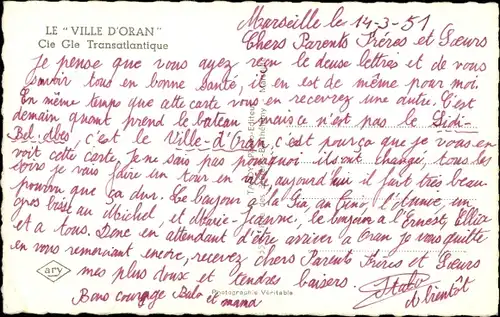 LE "VILLE D'ORAN"
Cie Gle Transatlantique
Marseille le 14-3-51
Chers Parents Fréres et Sœurs
Je pense que vous ayez reçu le deuse lettres et de vous
savoir tous en bonne santé, il en est de même pour moi
En même temps que cette carte vous en recevrez une autre. C'est
demain qu'ont prend le bateau mais ce n'est pas le Sidi-
Bel-Abbes, c'est le Ville-d'Oran, c'est pourça que je vous en
voit cette carte. Je ne sais pas pourquoi ils ont changé, tous les
soirs je vais faire un tour en ville, aujourd'hui il fait très beau
pourvu que ça dur. Le bonjour a la Zia Gino, l'Annie, un
gros baisé au Michel et Marie-Jeanne, le bonjour a l'Ernest,
et a tous. Donc en attendant d'être arriver a Oran je vous quitte
en vous remerciant encore, recevez chers Parents Fréres et Sœurs
mes plus doux et tendres baisers. Italo
Bons courage Balo et mama
A bientôt
ary
Photographie Véritable